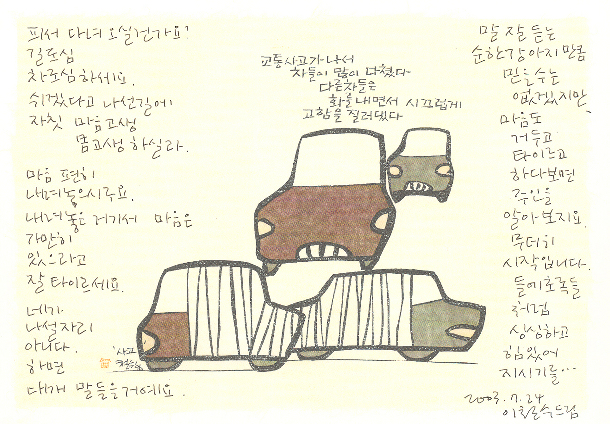 피서 다녀 오실건가요?
길조심
차조심하세요.
쉬겠다고 나선길에
자칫 마음고생
몸고생 하실라.
마음 편히
내려놓으시구요.
내려놓은 거기서 마음은
가만히
있으라고
잘 타이르세요.
네가
나설자리
아니다.
하면
대개 말들을거예요.
교통사고가 나서
차들이 많이 다쳤다
다른차들은
화를 내면서 시끄럽게
고함을 질러댔다
말 잘 듣는
순한강아지만큼
믿을수는
없겠지만,
마음도
거두고
타이르고
하다보면
주인을
알아보지요.
무더위
시작입니다.
들에초록들
처럼
싱싱하고
힘있어
지시기를…
2003. 7. 24
이철수드림